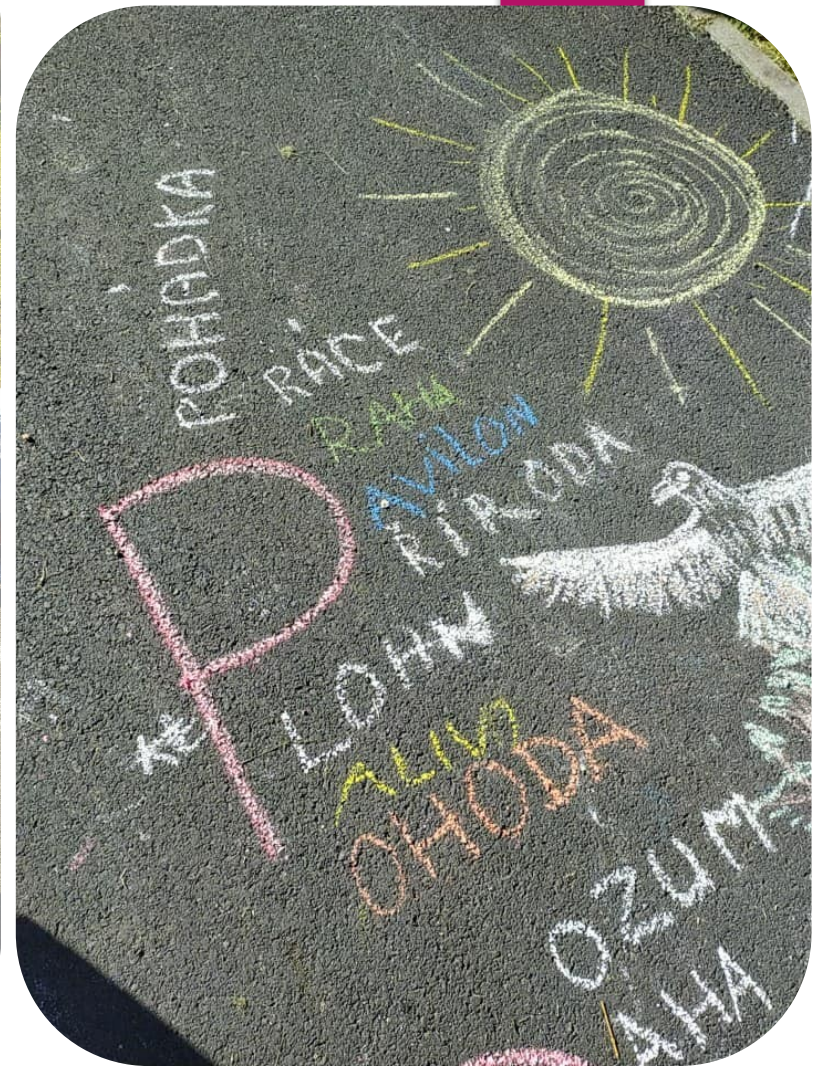 POHÁDKA
RÁCE
RAHA
AVILON
ŘÍRODA
P
LOHN
OHODA
OZUM
AHA